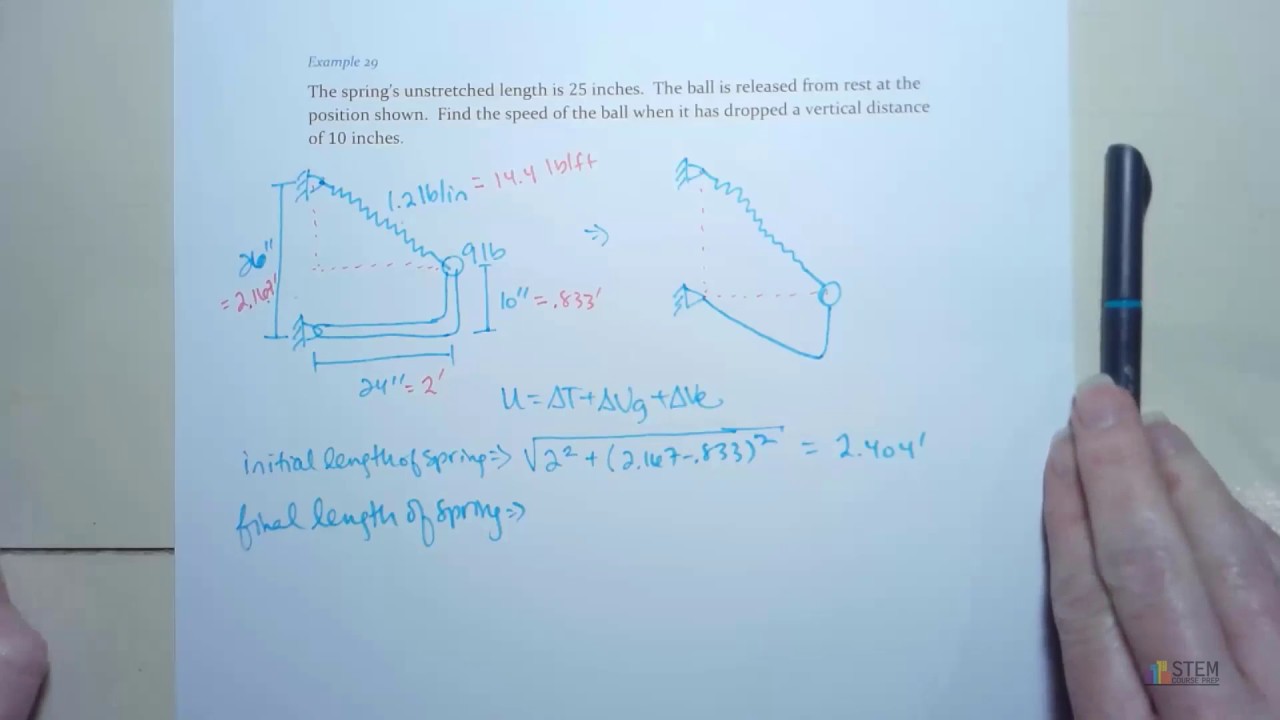 Example 29
The spring's unstretched length is 25 inches. The ball is released from rest at the
position shown. Find the speed of the ball when it has dropped a vertical distance
of 10 inches.
1.2 lb/in = 14.4 lb/ft
26"
= 2.167'
9 lb
⇒
10" = .833'
24" = 2'
U = ΔT + ΔVg + ΔVe
initial length of spring ⇒ √2² + (2.167-.833)² = 2.404'
final length of spring ⇒
STEM
COURSE PREP